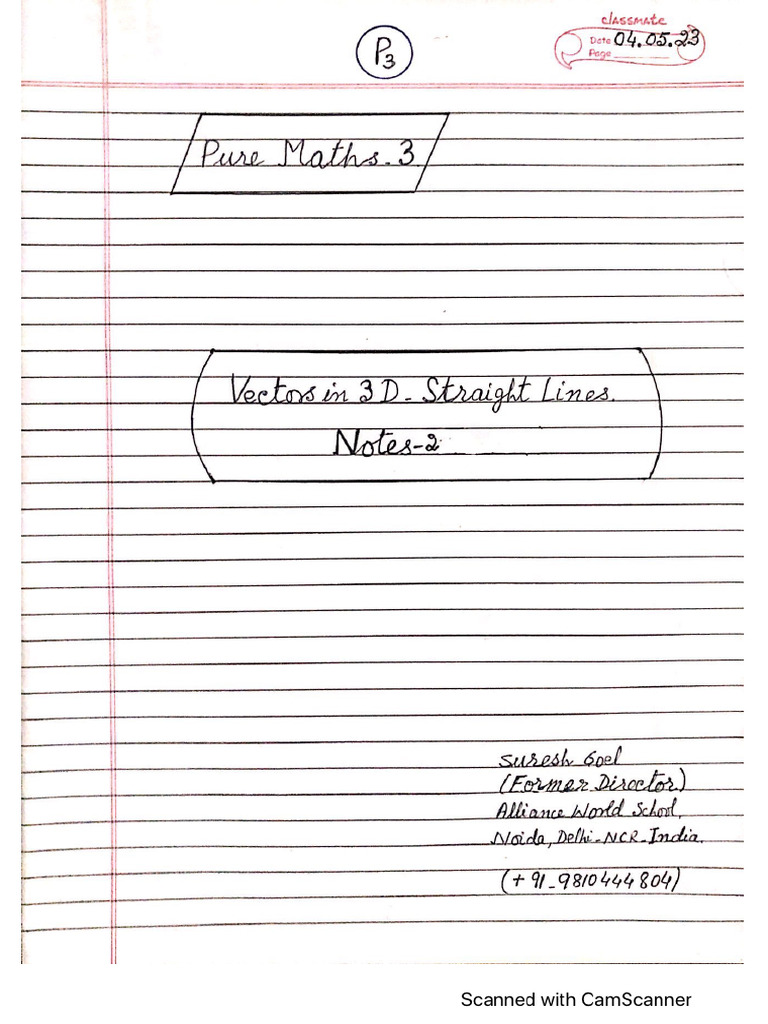 P3
classmate
Date 04.05.23
Page
Pure Maths.3
Vectors in 3D - Straight Lines.
Notes-2
Suresh Goel
(Former Director)
Alliance World School,
Noida, Delhi-NCR-India.
(+91-9810444804)
Scanned with CamScanner